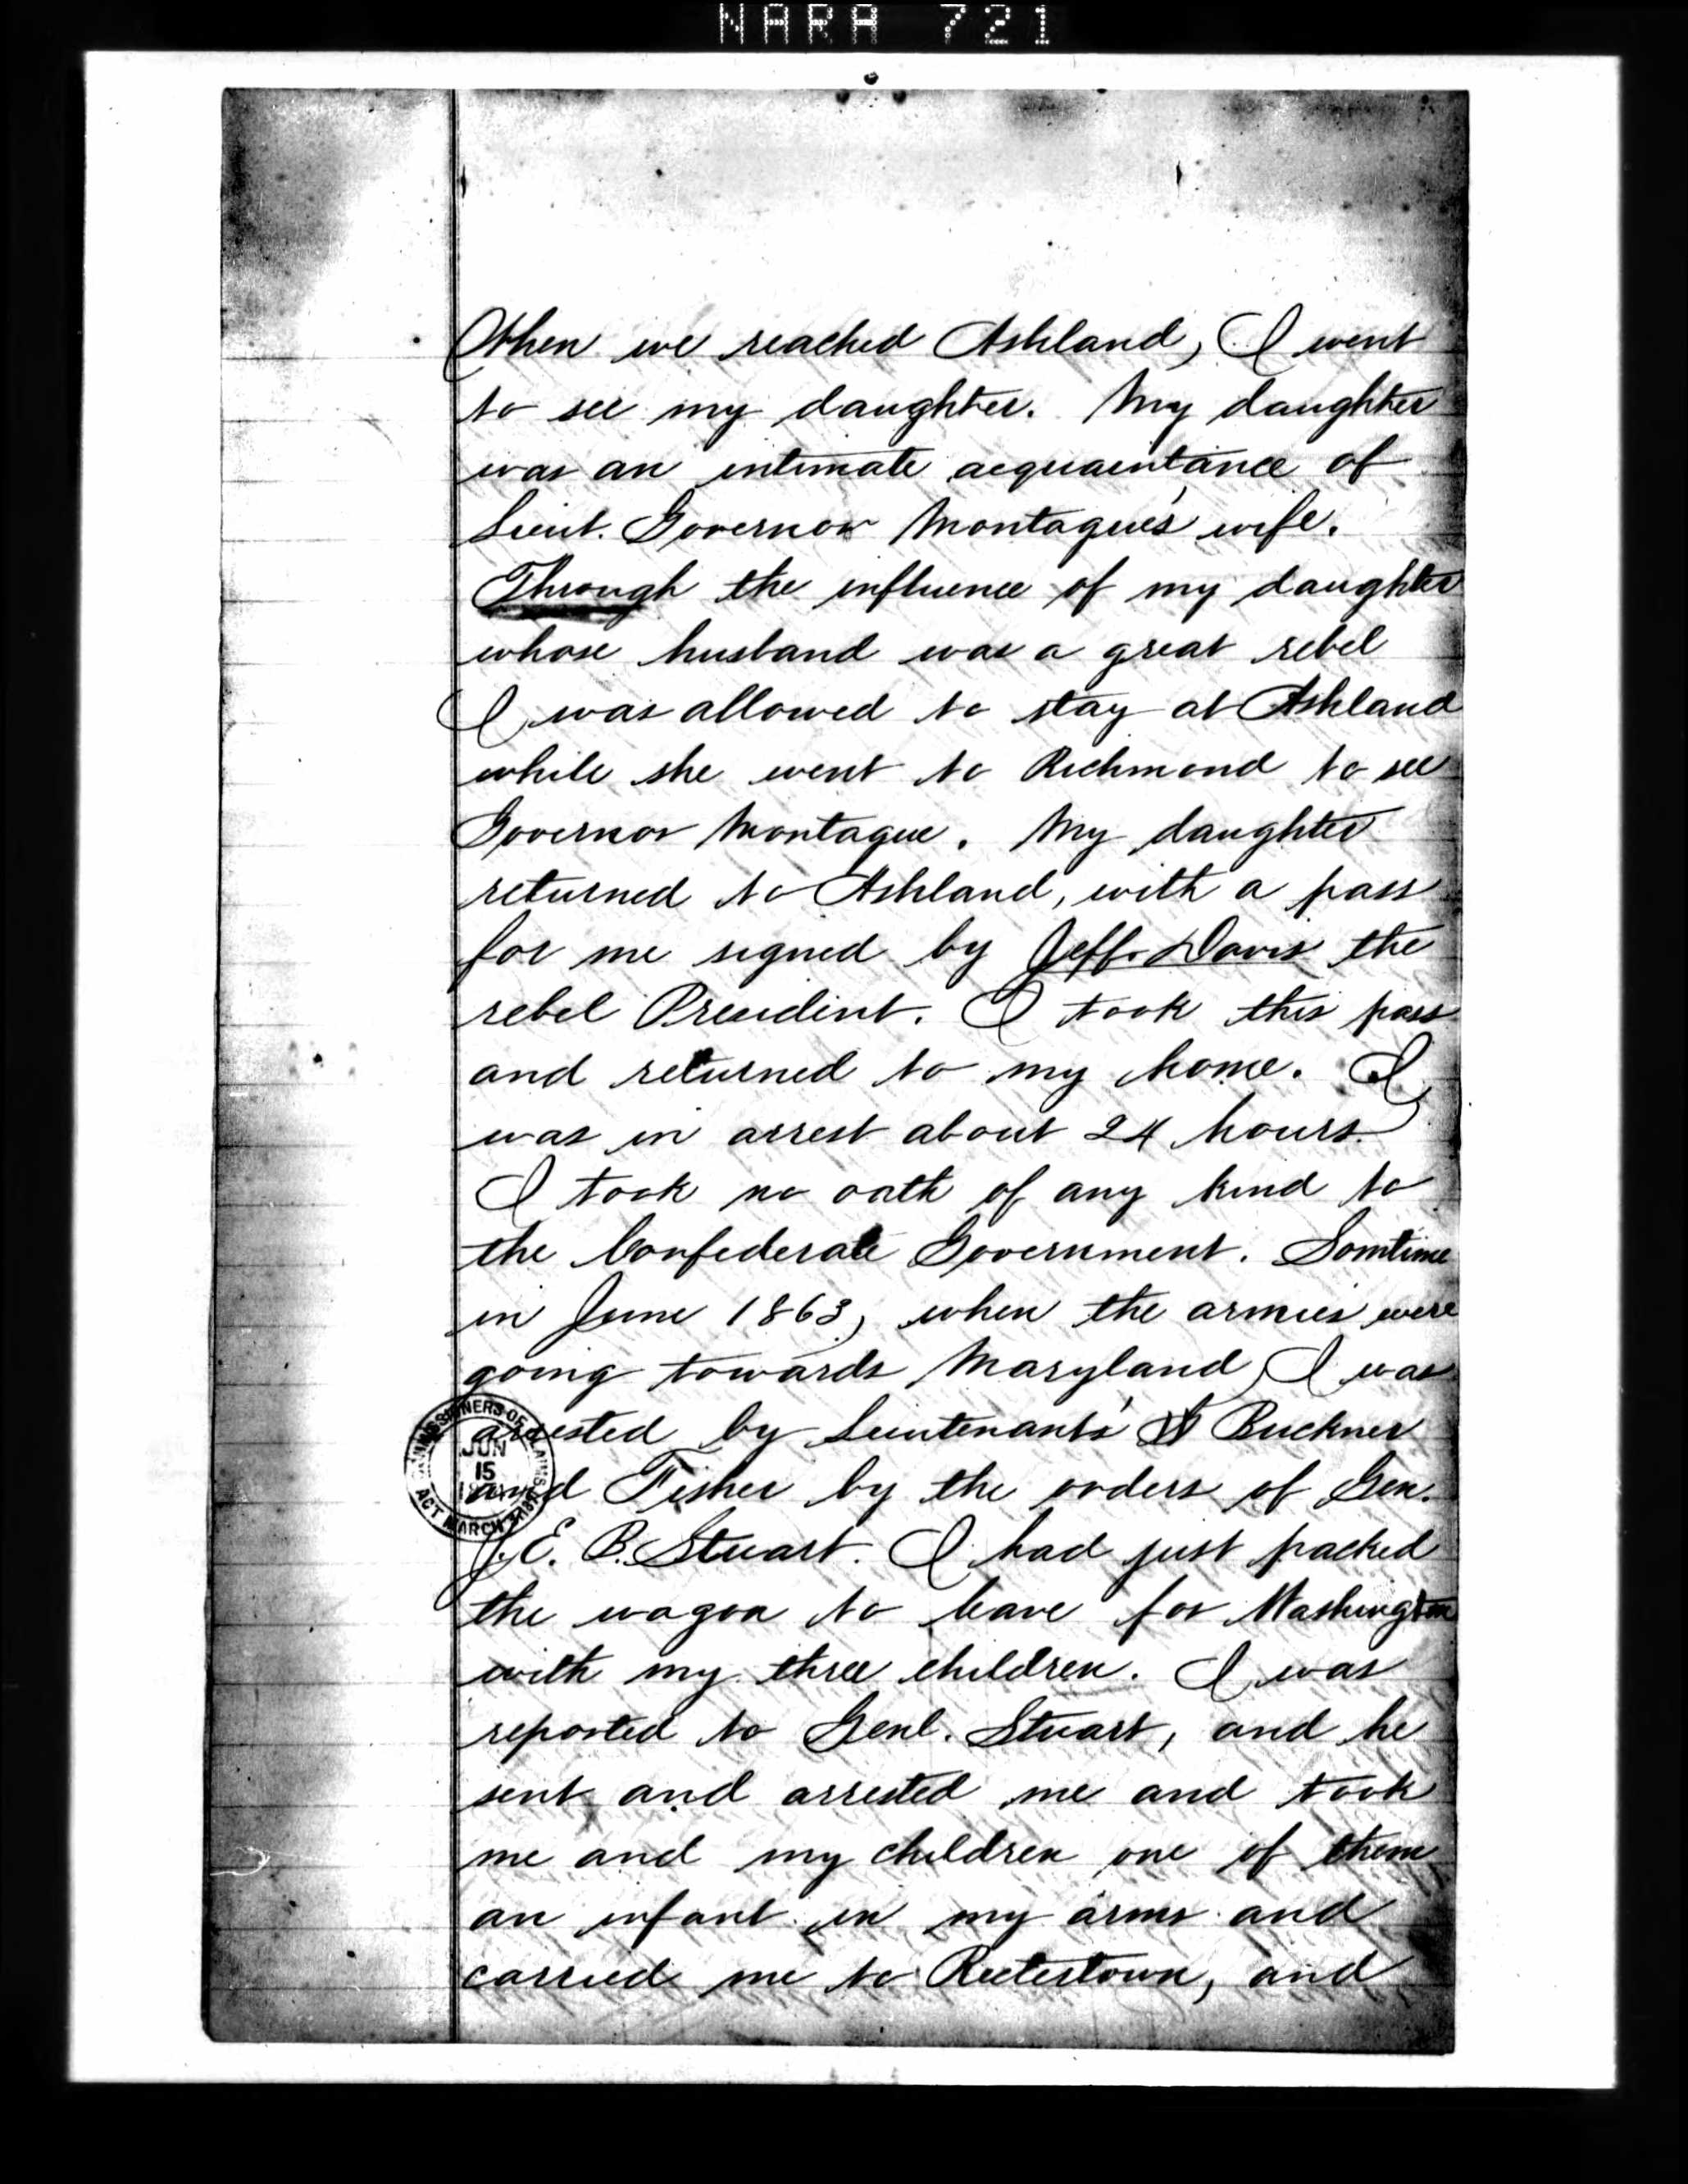 NARA 721
When we reached Ashland, I went
to see my daughter. My daughter
was an intimate acquaintance of
Lieut. Governor Montague's wife.
Through the influence of my daughter
whose husband was a great rebel
I was allowed to stay at Ashland
while she went to Richmond to see
Governor Montague. My daughter
returned to Ashland, with a pass
for me signed by Jeff. Davis the
rebel President. I took this pass
and returned to my home. I
was in arrest about 24 hours.
I took no oath of any kind to
the Confederate Government. Somtime
in June 1863, when the armies were
going towards Maryland, I was
arrested by Lieutenants Buckner
and Fisher by the orders of Gen.
J. E. B. Stuart. I had just packed
the wagon to leave for Washington
with my three children. I was
reported to Genl. Stuart, and he
sent and arrested me and took
me and my children one of them
an infant in my arms and
carried me to Rectertown, and
COMMISSIONERS OF CLAIMS
JUN
15
ACT MARCH